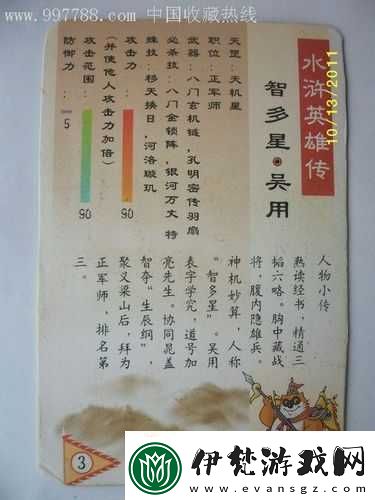 www.997788.com 中国收藏热线
水浒英雄传
10/13/2011
智多星·吴用
天罡：天机星
职位：正军师
武器：八门玄机链,孔明密传羽扇
必杀技：八门金锁阵,银河万丈 特
殊技：移天换日,河洛璇玑
攻击力： 90
(并使他人攻击力加倍)
攻击范围： 90
防御力： 5
人物小传
熟读经书，精通三
韬六略。胸中藏战
将，腹内隐雄兵。
神机妙算，人称
“智多星”。吴用
表字学究，道号加
亮先生。协同晁盖
智夺“生辰纲”，
聚义梁山后，拜为
正军师，排名第
三。
3
伊梵游戏网
www.evansgz.com